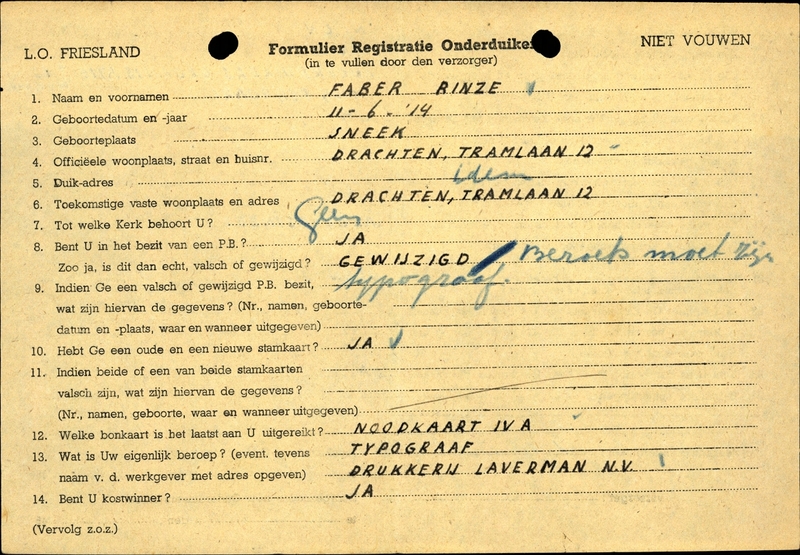 L.O. FRIESLAND
Formulier Registratie Onderduiker
NIET VOUWEN
(in te vullen door den verzorger)
1. Naam en voornamen FABER RINZE
2. Geboortedatum en -jaar 11-6.'14
3. Geboorteplaats SNEEK
4. Officiëele woonplaats, straat en huisnr. DRACHTEN, TRAMLAAN 12
5. Duik-adres idem
6. Toekomstige vaste woonplaats en adres DRACHTEN, TRAMLAAN 12
7. Tot welke Kerk behoort U? Geen
8. Bent U in het bezit van een P.B.? JA
Zoo ja, is dit dan echt, valsch of gewijzigd? GEWIJZIGD Beroep moet zijn
9. Indien Ge een valsch of gewijzigd P.B. bezit, typograaf.
wat zijn hiervan de gegevens? (Nr., namen, geboorte-
datum en -plaats, waar en wanneer uitgegeven)
10. Hebt Ge een oude en een nieuwe stamkaart? JA
11. Indien beide of een van beide stamkaarten
valsch zijn, wat zijn hiervan de gegevens?
(Nr., namen, geboorte, waar en wanneer uitgegeven)
12. Welke bonkaart is het laatst aan U uitgereikt? NOODKAART IV A
13. Wat is Uw eigenlijk beroep? (event. tevens TYPOGRAAF
naam v. d. werkgever met adres opgeven) DRUKKERIJ LAVERMAN N.V.
14. Bent U kostwinner? JA
(Vervolg z.o.z.)